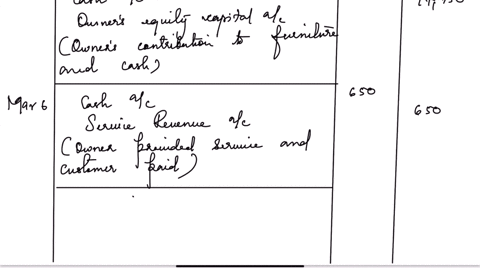 Cash a/c
Owner's equity capital a/c
(Owner's contribution to furniture
and cash)
Mar 6 Cash a/c 650
Service Revenue a/c 650
(Owner provided service and
customer paid)